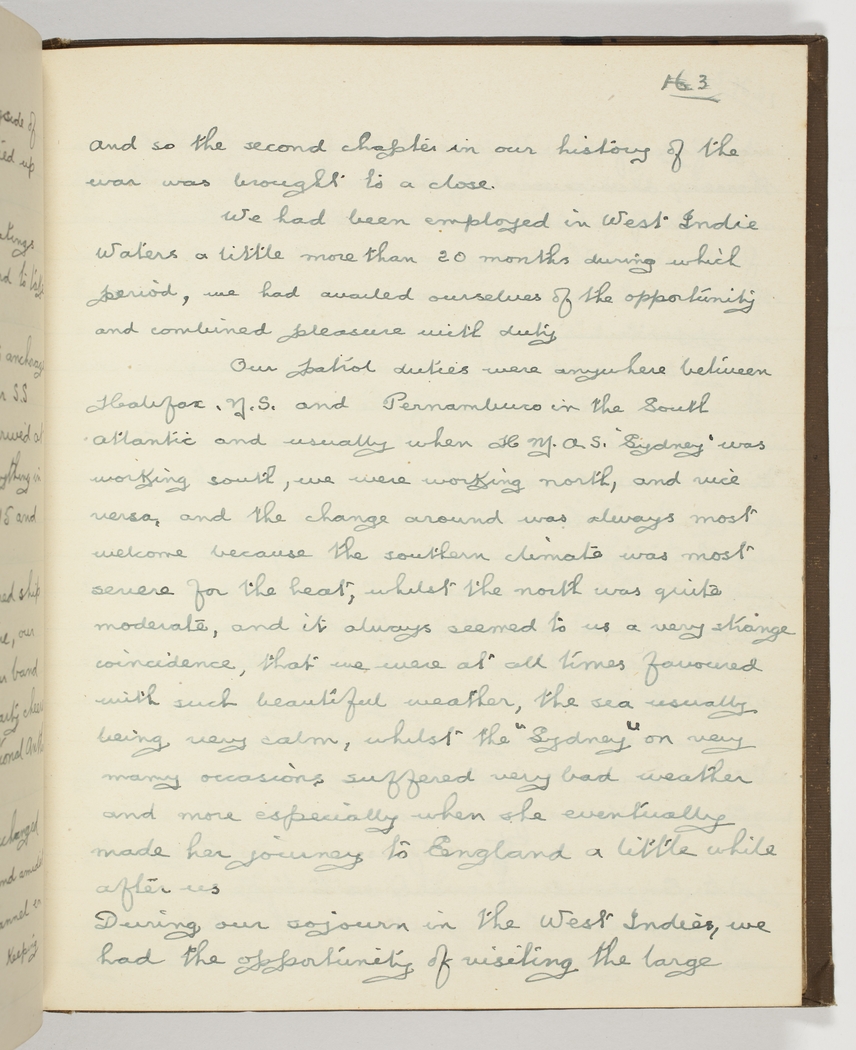 163
and so the second chapter in our history of the
war was brought to a close.
We had been employed in West Indie
Waters a little more than 20 months during which
period, we had availed ourselves of the opportunity
and combined pleasure with duty
Our patrol duties were anywhere between
Halifax. N.S. and Pernambuco in the South
Atlantic and usually when H M. A. S. "Sydney" was
working south, we were working north, and vice
versa, and the change around was always most
welcome because the southern climate was most
severe for the heat, whilst the north was quite
moderate, and it always seemed to us a very strange
coincidence, that we were at all times favoured
with such beautiful weather, the sea usually
being very calm, whilst the "Sydney" on very
many occasions suffered very bad weather
and more especially when she eventually
made her journey to England a little while
after us
During our sojourn in the West Indies, we
had the opportunity of visiting the large
side of
ed up
d to
anchorage
SS
15 and
ed ship
our
band
and
Keeping